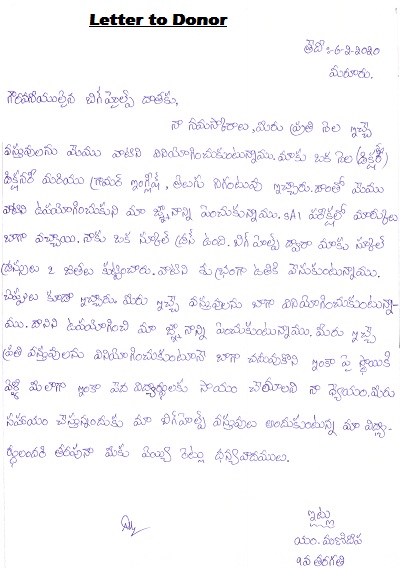 Letter to Donor
తేది :-6-2-2020
మరూరు.
గౌరవనీయులైన బిగ్‌హెల్ప్ దాతకు,
నా నమస్కారాలు, మీరు ప్రతి నెల ఇచ్చే
వస్తువులను మేము వాటిని వినియోగించుకుంటున్నాము. మాకు ఒక నెల (డిక్షనరీ)
డిక్షనరీ మరియు గ్రామర్ ఇంగ్లీష్, తెలుగు నిగంటువు ఇచ్చారు. దాంతో మేము
వాటిని ఉపయోగించుకుని మా జ్ఞానాన్ని పెంచుకున్నాము. SA1 పరీక్షలో మార్కులు
బాగా వచ్చాయి. నాకు ఒక స్కూల్ డ్రస్ ఉంది. బిగ్ హెల్ప్ ద్వారా మాకు స్కూల్
డ్రస్సులు 2 జతలు కుట్టించారు. వాటిని శుభ్రంగా ఉతికి వేసుకుంటున్నాము.
చెప్పులు కూడా ఇచ్చారు. మీరు ఇచ్చే వస్తువులను బాగా వినియోగించుకుంటున్నా-
ము. దానిని ఉపయోగించి మా జ్ఞానాన్ని పెంచుకుంటున్నాము. మీరు ఇచ్చే
ప్రతి వస్తువులను వినియోగించుకుంటూనే బాగా చదువుకొని ఇంకా పై స్థాయికి
వెళ్లి మీలాగా ఇంకా పేద విద్యార్థులకు సాయం చేయాలని నా ధ్యేయం. మీరు
సహాయం చేస్తున్నందుకు మా బిగ్‌హెల్ప్ వస్తువులు అందుకుంటున్న మా విద్యా-
ర్థులందరి తరపునా మీకు వెయ్యి రెట్లు ధన్యవాదములు.
ఇట్లు
యం.
9వ తరగతి